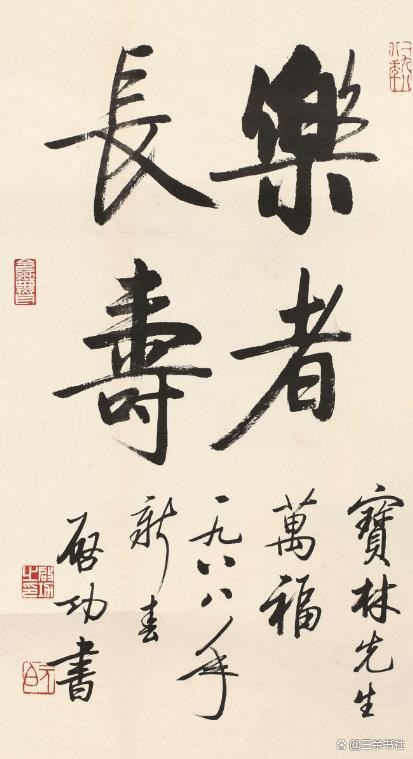 樂者
長壽
寶林先生
萬福
一九八八年
新春
啟功書
啟功之印
元白
@三余书社